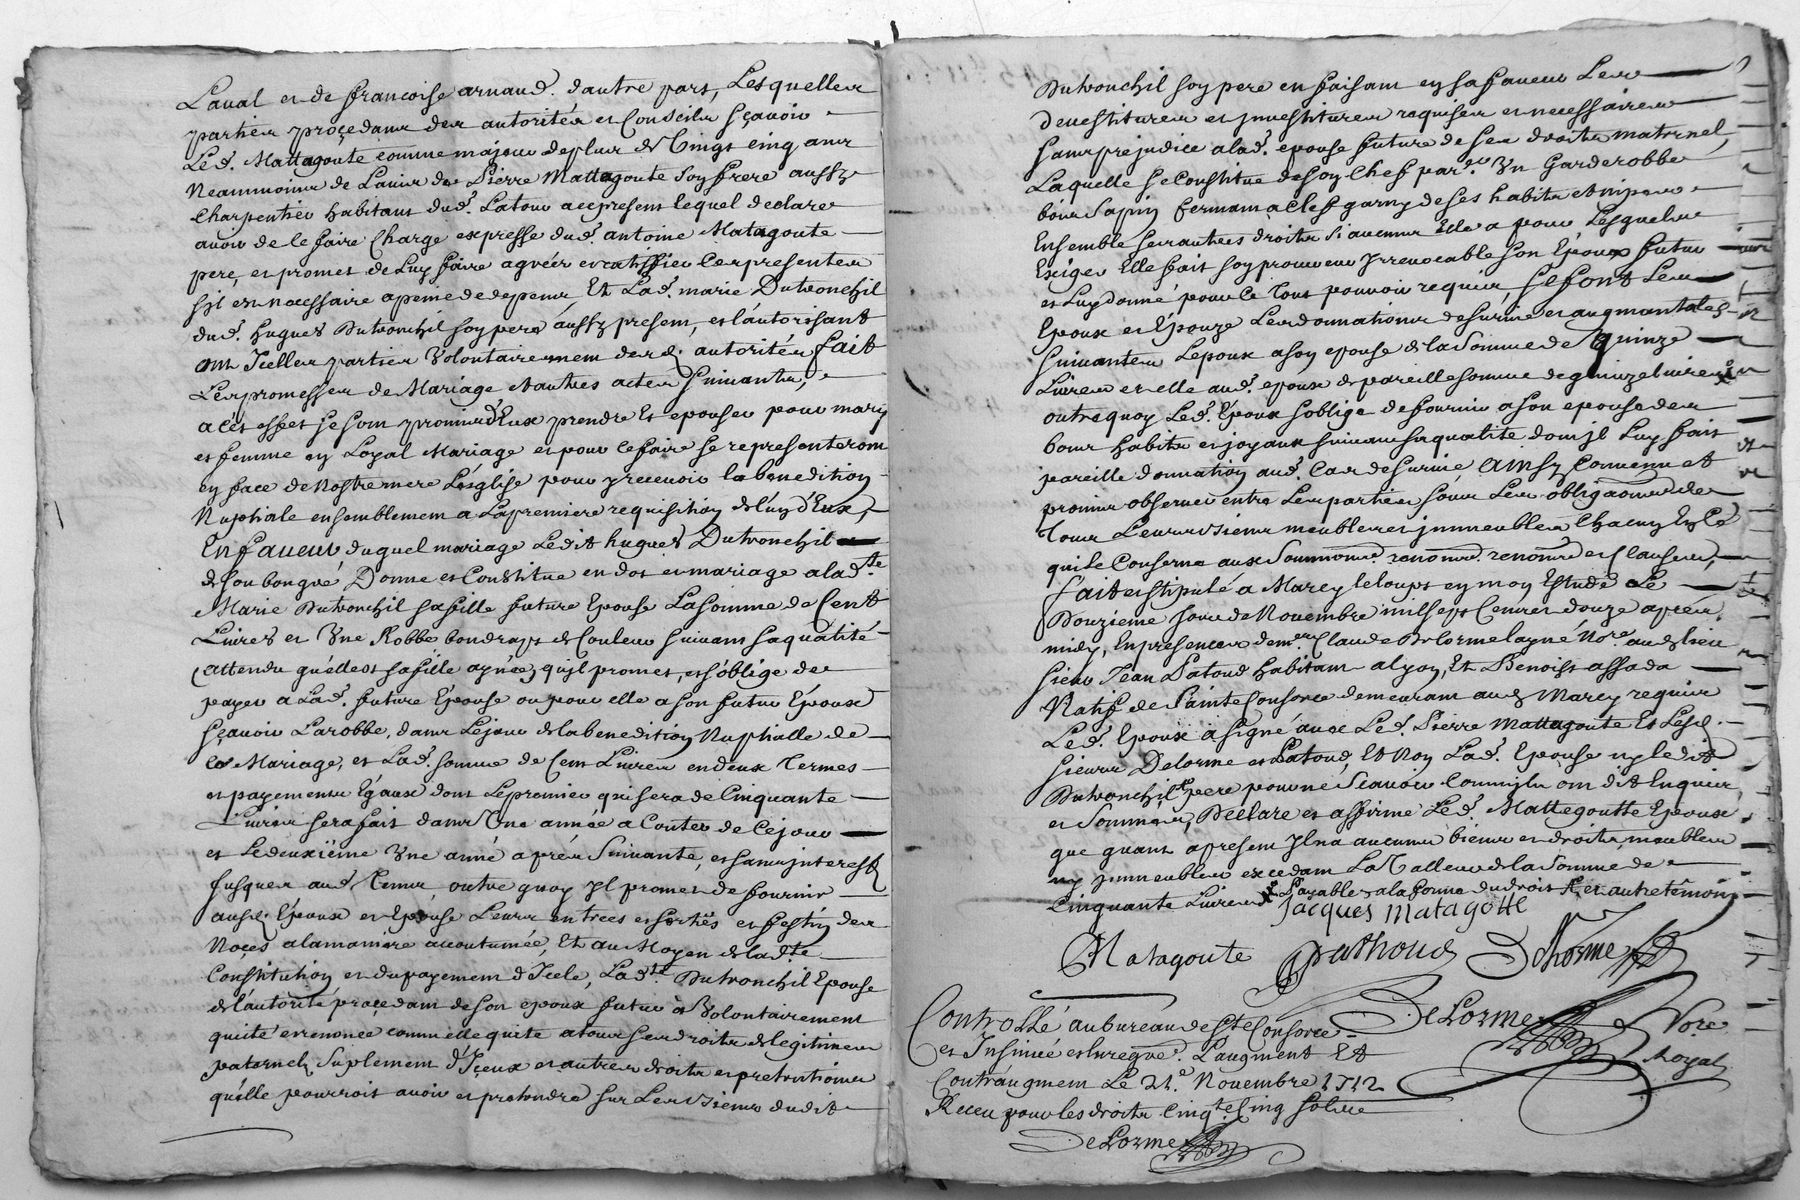 Laval et de francoise arnaud. d'autre part, Lesquelles
parties proçedans des autoritéz et Conseils sçavoir
Led. Mattagoute comme majeur de plus de Vingt cinq ans
Neammoins de L'avis de Pierre Mattagoute soy frere aussy
Charpentier habitant dud. Latour acepresent lequel declare
avoir de le faire Charge expresse dud. antoine Matagoute
pere, et promet de Luy faire agréer et ratiffier Cespresentes
sil est necessaire apeine de depens, Et Lad. marie Dutronchil
dud. hugues Dutronchil soy pere aussy present, et l'autorisant
ont Icelles parties Volontairement desd. autoritéz fait
Les promesses de Mariage et autres actes suivants,
a cet effet se sont promis d'Eux prendre Et epouser pour mary
et femme en Loyal Mariage et pour ce faire se representeront
en face de Nostre mere L'esglise pour y recevoir la benedition
Nuptiale ensemblement a La premiere requisition de l'un d'Eux,
En faveur duquel mariage Ledit hugues Dutronchil
de son bon gré Donne et Constitue en dot et mariage a lad.te
Marie Dutronchil sa fille future Epouse La somme de Cent
Livres et Vne Robbe bon drap de Couleur suivant sa qualité
attendu qu'elle est sa fille aynée, qu'il promet, et s'oblige de
payer a Lad. future Épouse ou pour elle a son futur Époux
sçavoir La robbe, dans Le jour de la benedition Nuptialle de
Ce Mariage, et Lad. somme de Cent Livres en deux Termes
et payements Égaux dont Le premier qui sera de Cinquante
Livres sera fait dans Vne année a Conter de Cejour
et Le deuxiéme Vne anné aprés Suivante, et sans interest
Jusques aud. Terme outre quoy Il promet de fournir
ausd. Époux et Epouse Leurs entrees et sorties et festin des
Noçes a la maniere accoutumée, Et au Moyen de lad.te
Constitution et du payement d'Icele, Lad.te Dutronchil Epouse
de l'autorité procedant de son epoux futur a Volontairement
quité et renoncé comm elle quite a tous ses droits de legitimes
paternels suplement d'Iceux et autres droits et pretentions
qu'elle pourroit avoir et pretendre sur Les biens dudit
Dutronchil soy pere en faisant en sa faveur Les
devestitures et jnvestitures requises et necessaires
sans prejudice a lad. epouse future de ses droits maternel,
Laquelle se Constitue de soy Chef par.er Vn Garderobbe
bois Sapin fermant a Clef garny de ses habits et nipes
Ensemble ses autres droits si aucuns Elle a pour Lesquels
Exiger Elle fait soy procureur Irrevocable son Epoux futur
et Luy donné pour Ce Tous pouvoir requis, se font Les
Epoux et Épouze Les donnations de survie et augmantales
suivantes Lepoux a soy epouse de la Somme de quinze
Livres et elle aud. epoux de pareille somme de quinze livres
outre quoy Led. Époux soblige de fournir a son epouse des
bons habits et joyaux suivans sa qualité dont jl Luy fait
pareille donnation aud. Cas de survie Ainsy Convenu et
promis observer entre Les parties sous Les obligãons de
Tous Leurs biens meubles et jmmeubles Chacun En Ce
qui Le Conserne aux Soummons. renonõns. et Clauses,
fait et stipulé a Marcy le loups en moy Estude Le
Douzieme Jour de Novembre mil sept Cent et douze apres
midy, En presences de m.re Claude De lorme layné No.re aud. lieu
sieur Jean Patoud habitant a lyon, Et Benoist assada
Natif de Sainte Consorce demeurant aud. Marcy requis
Led. Epoux a signé avec Led. Pierre Mattagoute Et Lesd.
sieurs Delorme et Patoud, Et Non Lad. Epouse ny Ledit
Dutronchil pere pour ne Scavoir Comm jls ont dit Enquis
et Sommés, Declare et affirme Led. Mattegoutte Epoux
que quant apresent Jl na aucuns biens et droits, meubles
ny jmmeubles excedans La Valleur de la Somme de
Cinquante Livres Payable a la forme du droit et autre temoin
Jacques matagotte
Matagoute Pathoud Delorme
DeLorme No.re Royal
Controllé au bureau de Ste Consorce
et Insinué et Enregré. L'augment Et
Contraugment Le 21.e Novembre 1712
Receu pour les droits Cinq.te Cinq sols
DeLorme